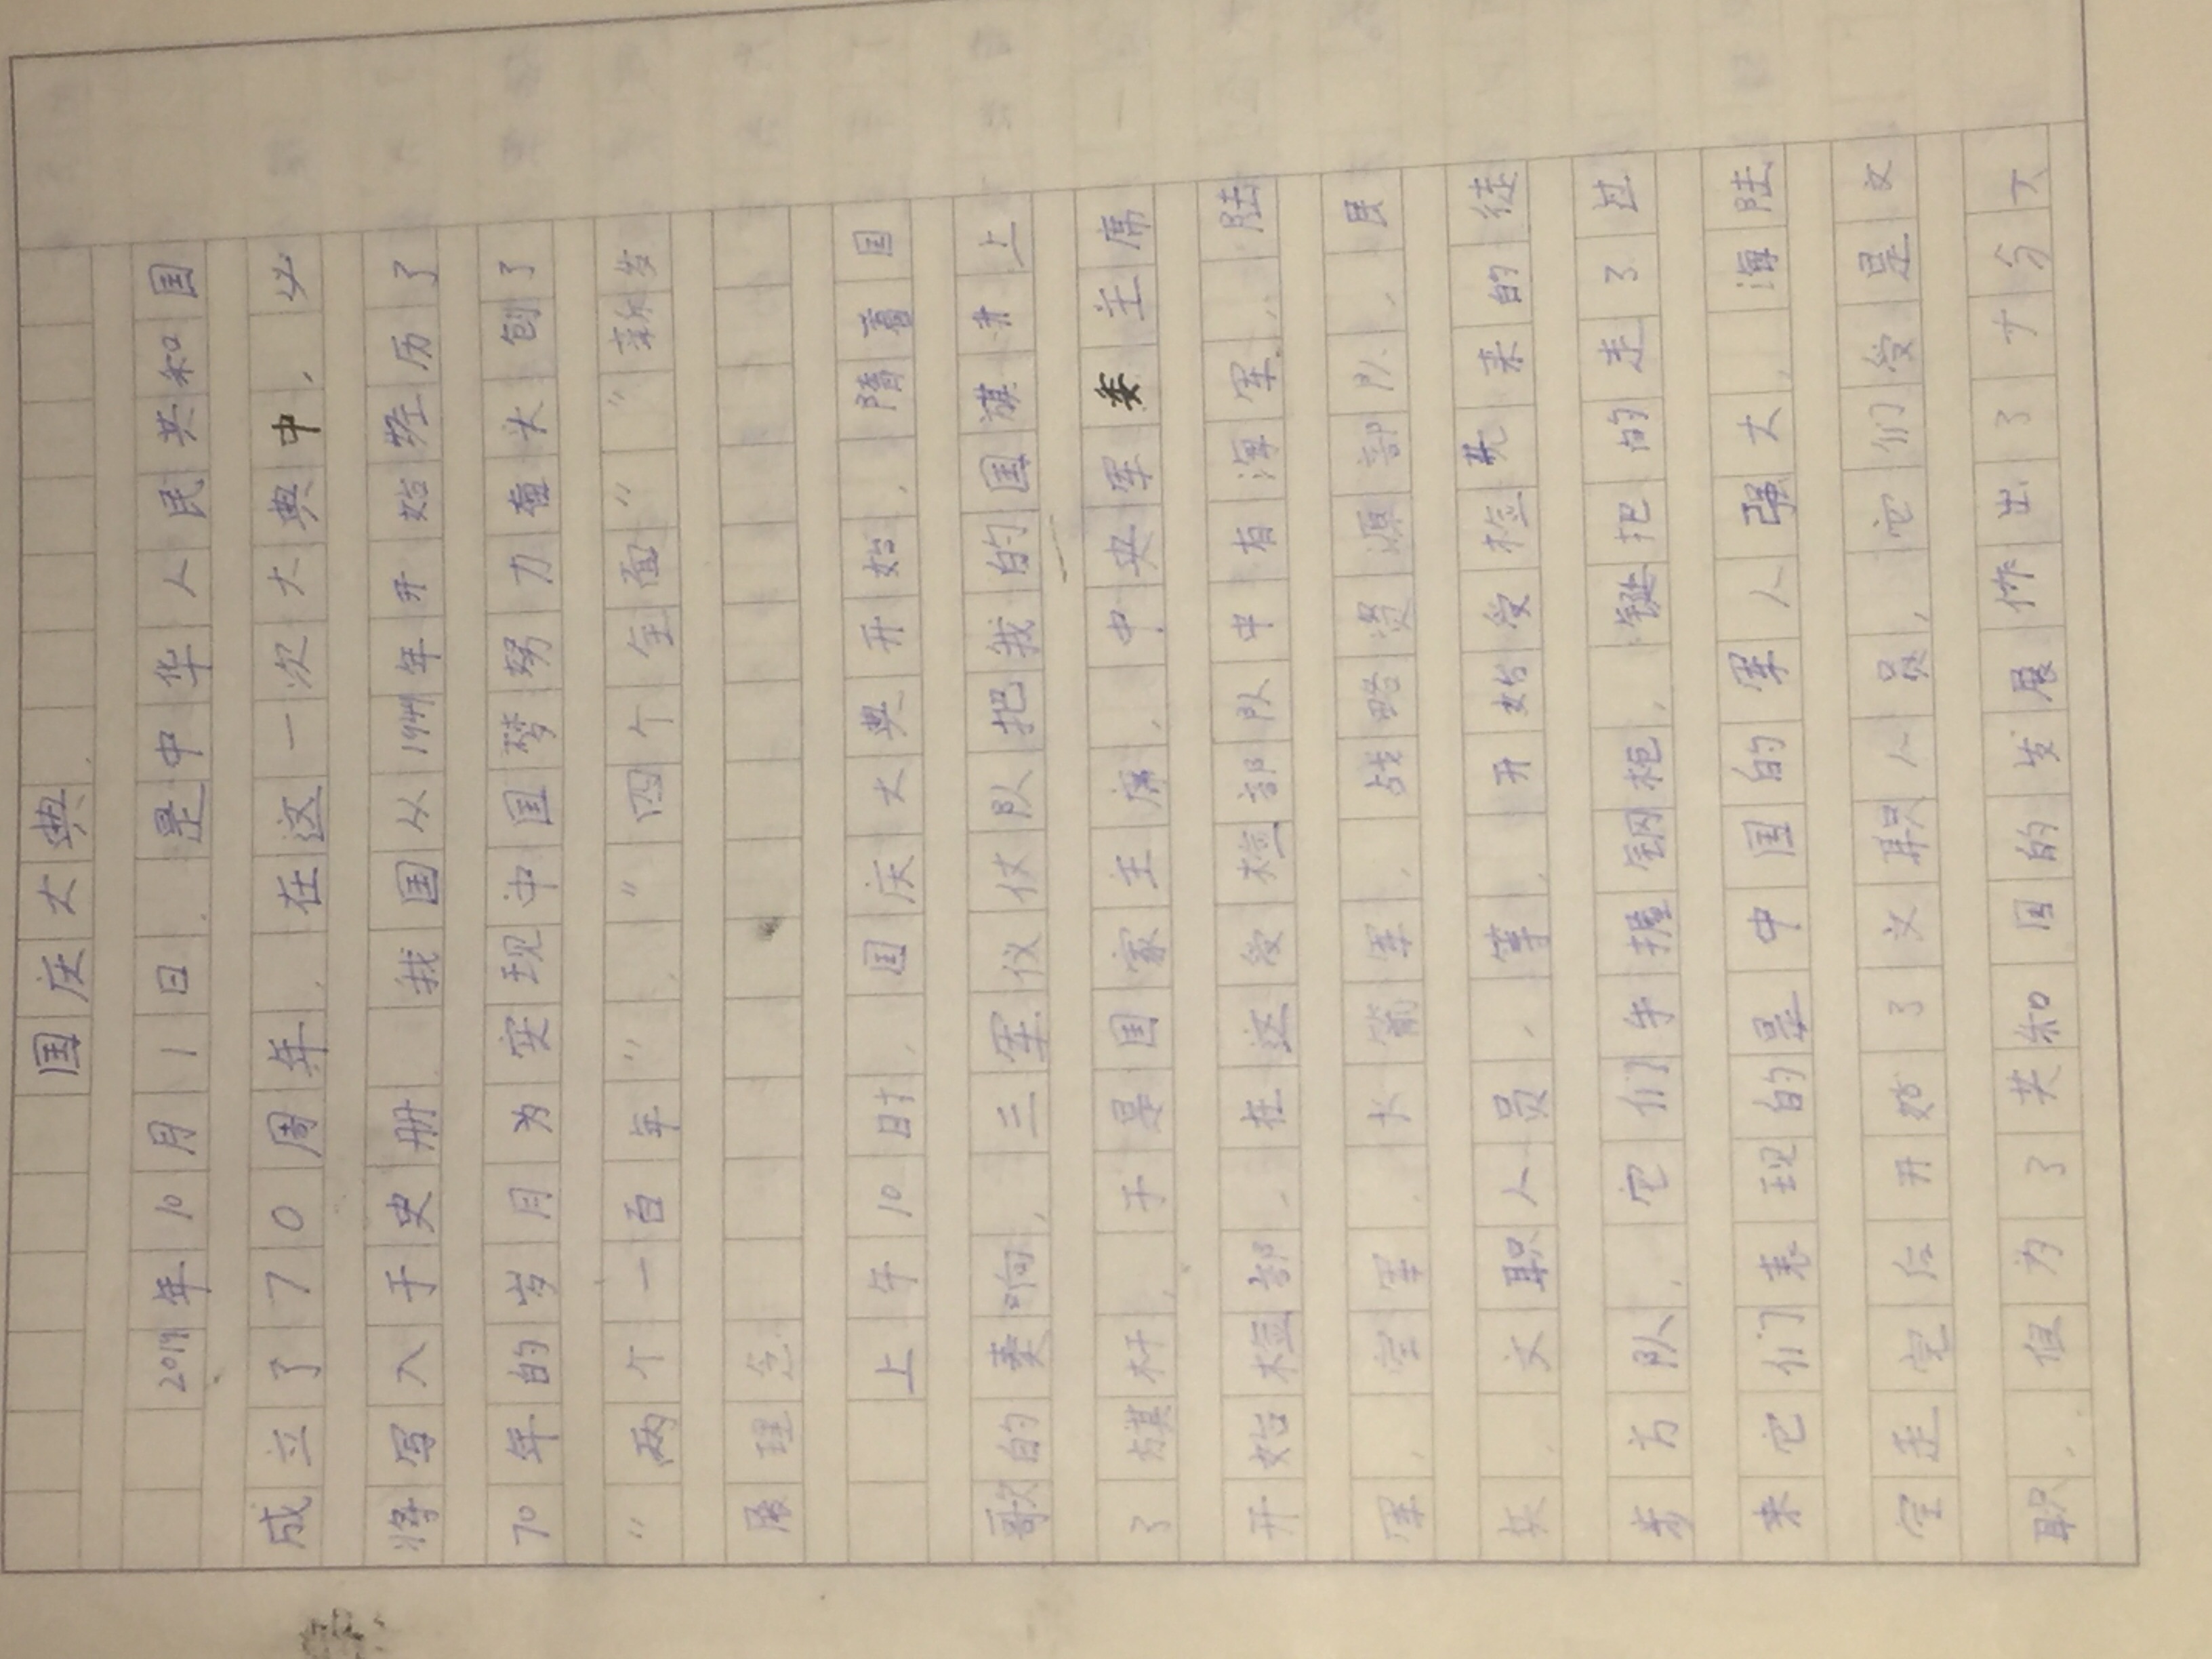 国庆大典.
2019年10月1日.是中华人民共和国
成立了70周年.在这一次大典中,必
将写入于史册.我国从1949年开始经历了
70年的岁月为实现中国梦努力奋头创了
"两个一百年","四个全面""新发
展理念
上午10时,国庆大典开始.隋着国
歌的奏响,三军仪仗队把我的国旗升上
了旗杆.于是国家主席,中央军委主席
开始检部.在这受检部队中有海军,陆
军,空军.火箭军.战略资源部队,民
兵.文职人员,等.开始受检先来的徒
步方队.它们手握钢枪,铿把的走了过
来它们表现的是中国的军人强大,海陆
空走完后开始了文职人员,它们受是文
职.但为了共和国的发展作出了十分大